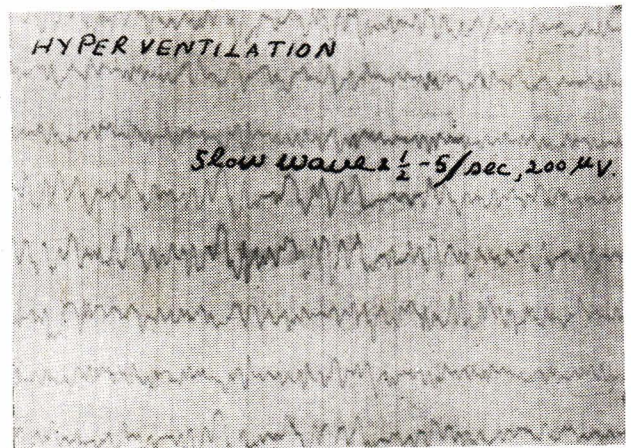 HYPER VENTILATION
Slow wave 2 ½ - 5/sec, 200 μV.